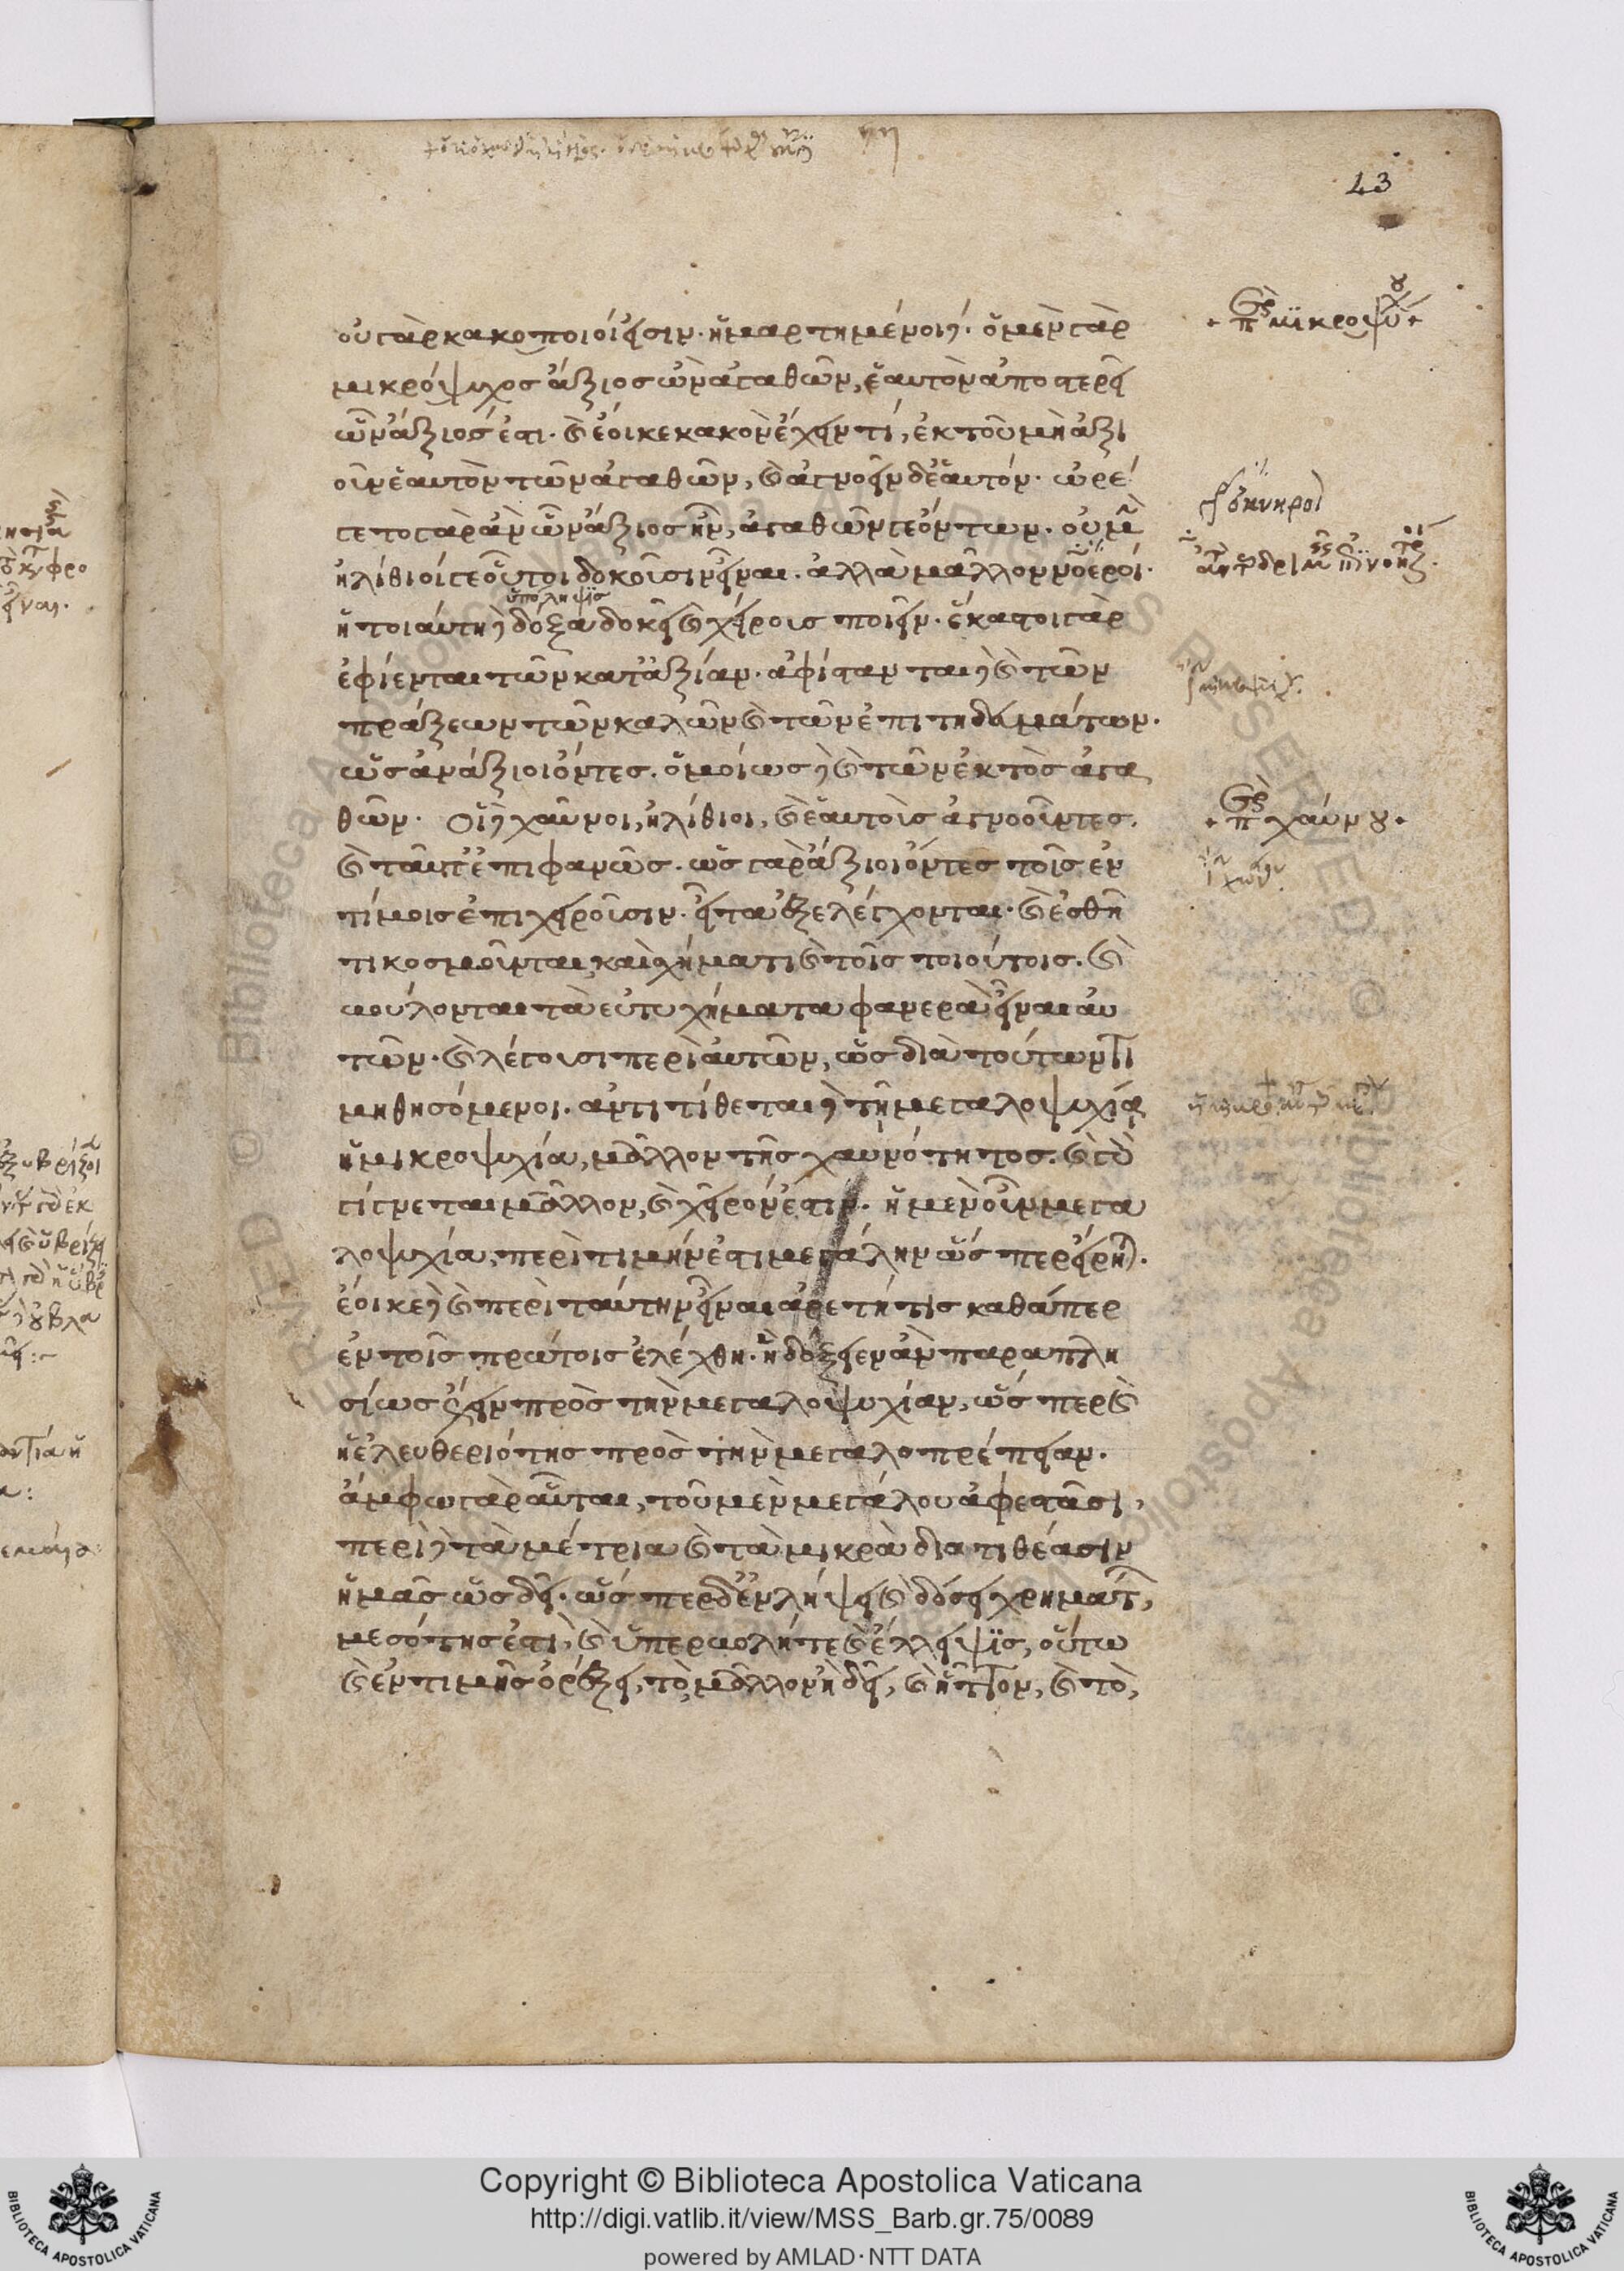 43
οὐ γὰρ κακοποιοί εἰσιν· ἡμαρτημένοι δέ· ὁ μὲν γὰρ
μικρόψυχος ἄξιος ὢν ἀγαθῶν, ἑαυτὸν ἀποστερεῖ
ὧν ἄξιός ἐστι· καὶ ἔοικε κακὸν ἔχειν τί, ἐκ τοῦ μὴ ἀξι
οῦν ἑαυτὸν τῶν ἀγαθῶν, καὶ ἀγνοεῖν δὲ ἑαυτόν· ὠρέ
γετο γὰρ ἂν ὧν ἄξιος ἦν, ἀγαθῶν γε ὄντων· οὐ μὴν
ἠλίθιοί γε οὗτοι δοκοῦσιν εἶναι· ἀλλὰ μᾶλλον νοεροί·
ὑπόληψις
ἡ τοιαύτη δὲ δόξα δοκεῖ καὶ χείρους ποιεῖν· ἕκαστοι γὰρ
ἐφίενται τῶν κατ' ἀξίαν· ἀφίστανται δὲ καὶ τῶν
πράξεων τῶν καλῶν καὶ τῶν ἐπιτηδευμάτων·
ὡς ἀνάξιοι ὄντες· ὁμοίως δὲ καὶ τῶν ἐκτὸς ἀγα
θῶν· Οἱ δὲ χαῦνοι, ἠλίθιοι, καὶ ἑαυτοὺς ἀγνοοῦντες,
καὶ ταῦτ' ἐπιφανῶς· ὡς γὰρ ἄξιοι ὄντες τοῖς ἐν
τίμοις ἐπιχειροῦσιν· εἶτα ἐξελέγχονται· καὶ ἐσθῆ
τι κοσμοῦνται, καὶ σχήματι καὶ τοῖς τοιούτοις· καὶ
βούλονται τὰ εὐτυχήματα φανερὰ εἶναι αὐ
τῶν· καὶ λέγουσι περὶ αὐτῶν, ὡς διὰ τούτων τι
μηθησόμενοι· ἀντιτίθεται δὲ τῇ μεγαλοψυχίᾳ
ἡ μικροψυχία, μᾶλλον τῆς χαυνότητος· καὶ γὰρ
γίγνεται μᾶλλον, καὶ χεῖρόν ἐστιν· ἡ μὲν οὖν μεγα
λοψυχία, περὶ τιμήν ἐστι μεγάλην ὥσπερ εἴρηται·
ἔοικε δὲ καὶ περὶ ταύτην εἶναι ἀρετή τις καθάπερ
ἐν τοῖς πρώτοις ἐλέχθη· ἣ δόξειεν ἂν παραπλη
σίως ἔχειν πρὸς τὴν μεγαλοψυχίαν, ὥσπερ καὶ
ἡ ἐλευθεριότης πρὸς τὴν μεγαλοπρέπειαν·
ἄμφω γὰρ αὗται, τοῦ μὲν μεγάλου ἀφεστᾶσι,
περὶ δὲ τὰ μέτρια καὶ τὰ μικρὰ διατιθέασιν
ἡμᾶς ὡς δεῖ· ὥσπερ δ' ἐν λήψει καὶ δόσει χρημάτων,
μεσότης ἐστὶ, καὶ ὑπερβολή τε καὶ ἔλλειψις, οὕτω
καὶ ἐν τιμῆς ὀρέξει, τὸ, μᾶλλον ἢ δεῖ, καὶ ἧττον, καὶ τὸ,
περὶ μικροψύχου
ὀκνηροί
περὶ χαύνου
Copyright © Biblioteca Apostolica Vaticana
http://digi.vatlib.it/view/MSS_Barb.gr.75/0089
powered by AMLAD·NTT DATA
BIBLIOTECA APOSTOLICA VATICANA
BIBLIOTECA APOSTOLICA VATICANA